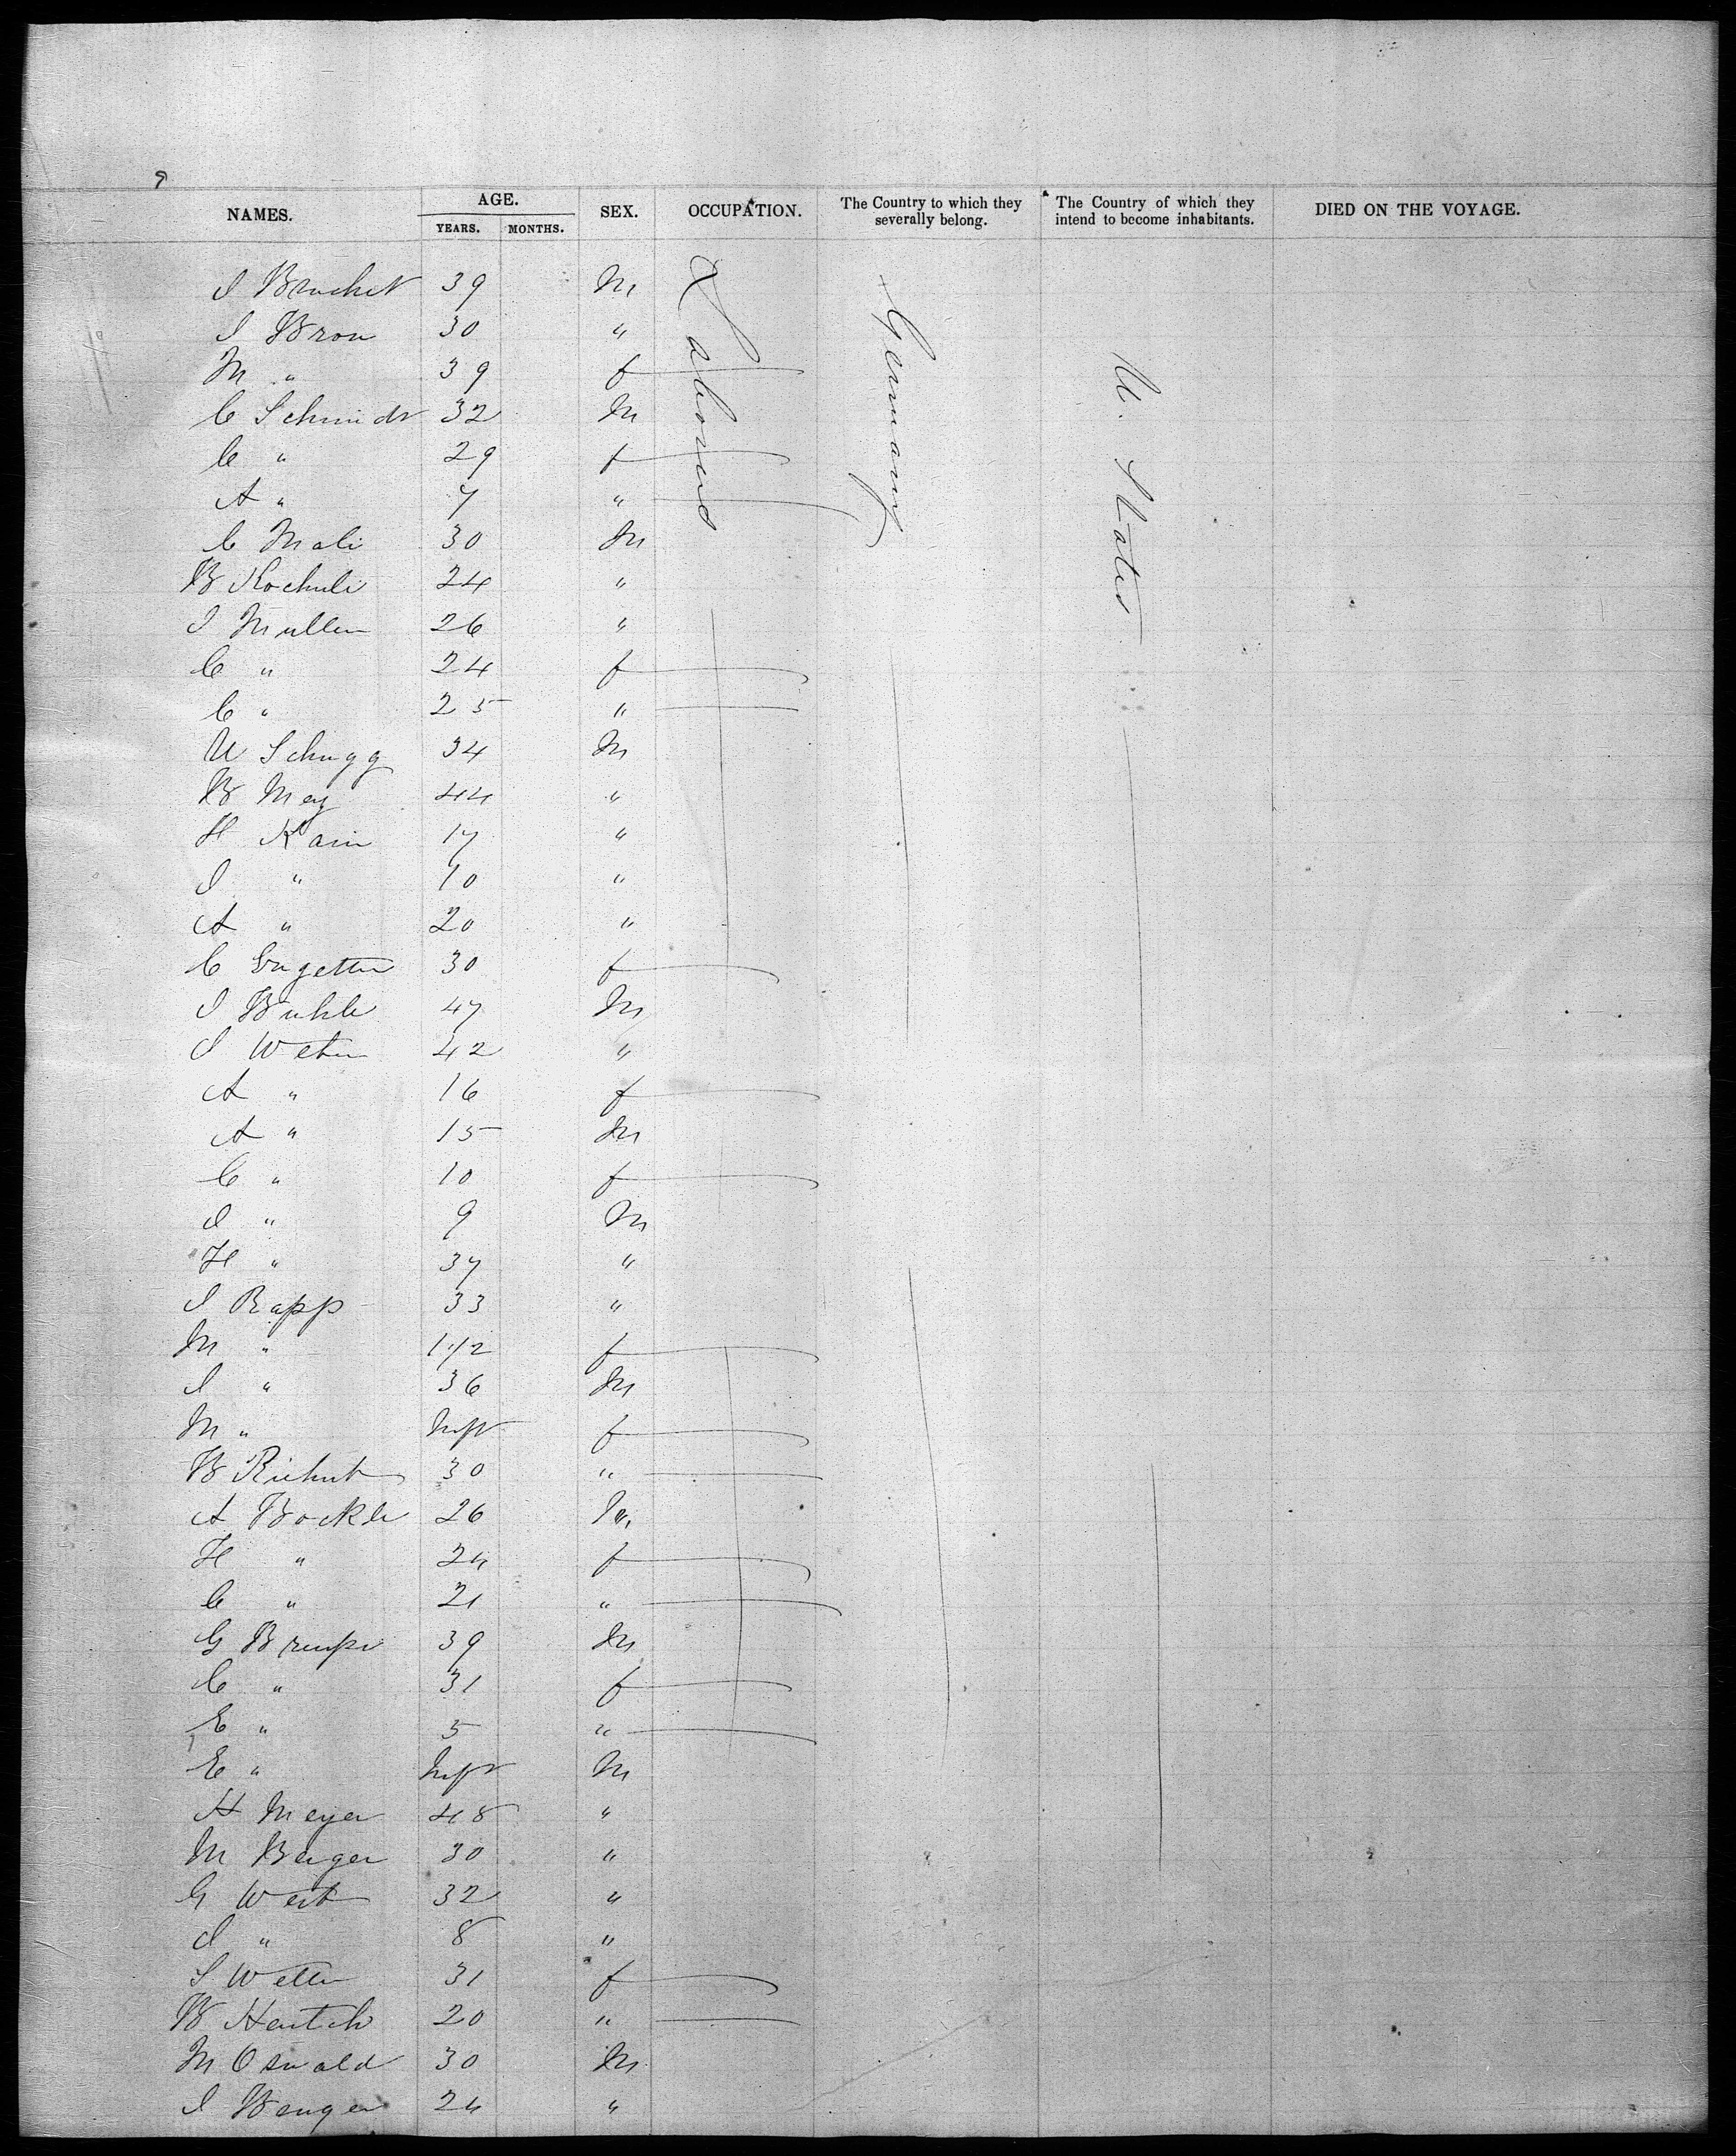 NAMES. AGE. SEX. OCCUPATION. The Country to which they severally belong. The Country of which they intend to become inhabitants. DIED ON THE VOYAGE.
YEARS. MONTHS.
Labourers Germany U. States
I Bruchet 39 M
I Bron 30 "
M " 39 f
C Schmidt 32 M
C " 29 f
A " 7 "
C Mali 30 M
B Kochuli 24 "
I Muller 26 "
C " 24 f
C " 25 "
U Schugg 34 M
B Mey 44 "
H Kain 17 "
I " 10 "
A " 20 "
C 30 f
I Buhle 47 M
I Weber 42 "
A " 16 f
A " 15 M
C " 10 f
I " 9 M
H " 37 "
I Rapp 33 "
M " 1 1/2 f
I " 36 M
M " Inft f
B 30 "
A Bockle 26 M
H " 24 f
C " 21 "
G 39 M
C " 31 f
E " 5 "
E " Inft M
H Meyer 48 "
M Berger 30 "
G Weit 32 "
I " 8 "
S Weller 31 f
B Hentsch 20 "
M Oswald 30 M
I Wenger 24 "